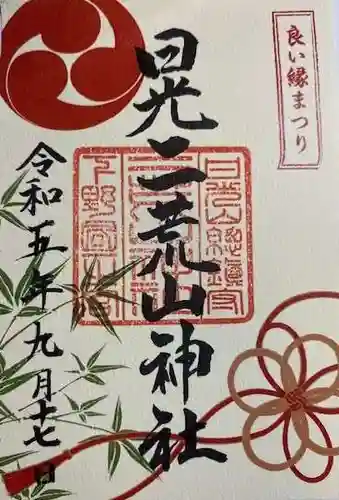 良い縁まつり
日光二荒山神社
令和五年九月十七日